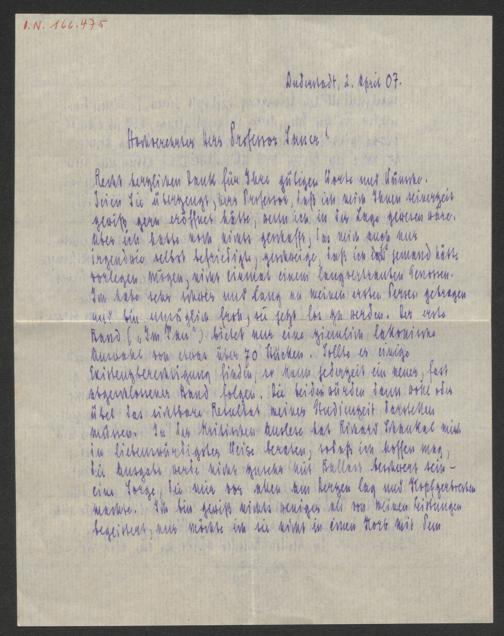 I.N. 166.475
Duderstadt, 2. April 07.
Hochverehrter Herr Professor Lauer!
Recht herzlichen Dank für Ihre gütigen Worte und Wünsche.
Seien Sie überzeugt, Herr Professor, daß ich mich Ihnen seinerzeit
gewiß gern eröffnet hätte, wenn ich in der Lage gewesen wäre.
Aber ich hatte noch nichts geschafft, das mich auch nur
irgendwie selbst befriedigt, geschweige, daß ich es jemand hätte
vorlegen mögen, nicht einmal einem langvertrauten Genossen.
Ich habe sehr schwer und lang an meinen ersten Versen getragen
und bin unsäglich froh, sie jetzt los zu werden. Der erste
Band („Im Tau“) bietet nur eine ziemlich lakonische
Auswahl von etwas über 70 Stücken. Sollte er einige
Existenzberechtigung finden, so kann jederzeit ein neuer, fast
abgeschlossener Band folgen. Die beiden würden dann wohl oder
übel das sichtbare Resultat meiner Studienzeit darstellen
müssen. In der kritischen Auslese hat Richard Schaukal mich
in liebenswürdigster Weise beraten, sodaß ich hoffen mag,
die Ausgabe werde nicht zu sehr mit Ballast beschwert sein –
eine Sorge, die mir vor allem am Herzen lag und Kopfzerbrechen
machte. Ich bin gewiß nichts weniger als von meinen Leistungen
begeistert, nur möchte ich sie nicht in einen Korb mit dem